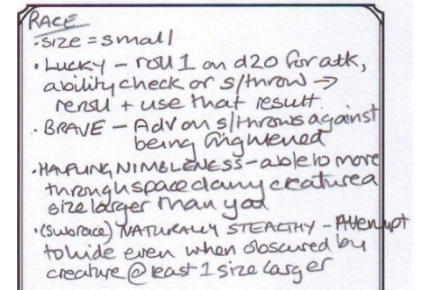 RACE
• size = small
• LUCKY – roll 1 on d20 for atk,
ability check or s/throw →
reroll + use that result
• BRAVE – Adv on s/throws against
being frightened
• HALFLING NIMBLENESS – able to move
through space of any creature a
size larger than you
• (Subrace) NATURALLY STEALTHY – Attempt
to hide even when obscured by
creature @ least 1 size larger